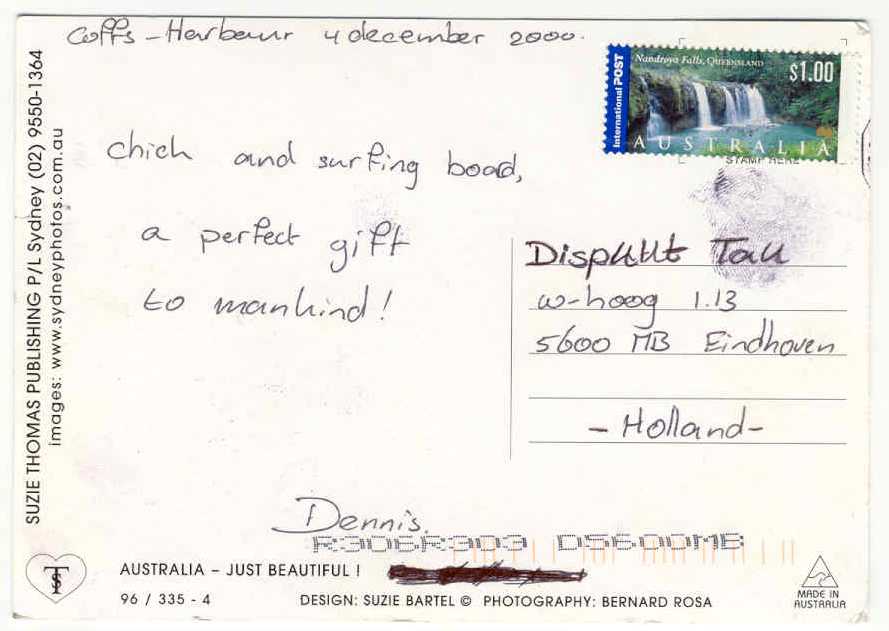 Coffs - Harbour 4 december 2000.
International POST
Nandroya Falls, QUEENSLAND
$1.00
AUSTRALIA
STAMP HERE
chick and surfing board,
a perfect gift
to mankind!
Dennis.
Dispuut Tau
w-hoog 1.13
5600 MB Eindhoven
- Holland -
R306R303 D5600MB
SUZIE THOMAS PUBLISHING P/L Sydney (02) 9550-1364
images: www.sydneyphotos.com.au
TS
AUSTRALIA – JUST BEAUTIFUL !
96 / 335 - 4
DESIGN: SUZIE BARTEL © PHOTOGRAPHY: BERNARD ROSA
MADE IN
AUSTRALIA